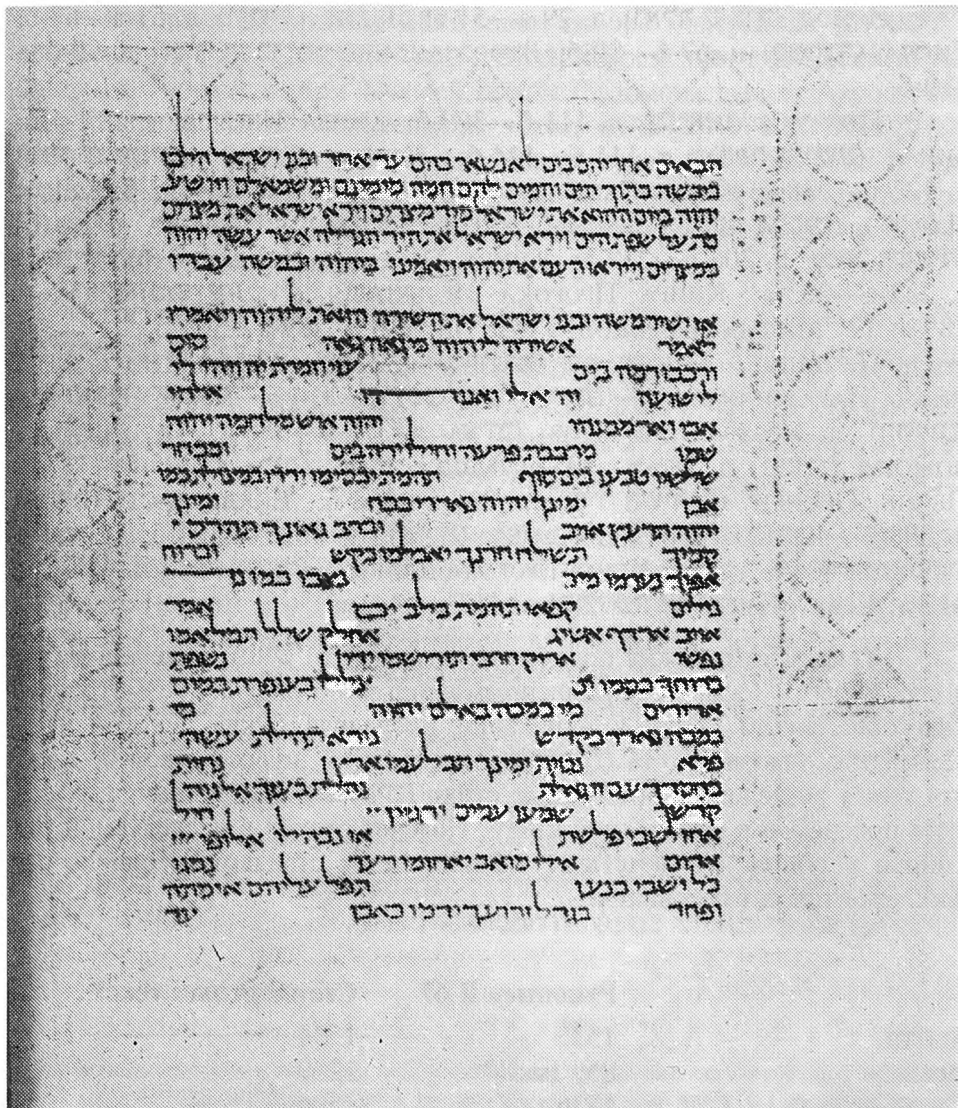 הבאים אחריהם בים לא נשאר בהם עד אחד ובני ישראל הלכו
ביבשה בתוך הים והמים להם חמה מימינם ומשמאלם ויושע
יהוה ביום ההוא את ישראל מיד מצרים וירא ישראל את מצרים
מת על שפת הים וירא ישראל את היד הגדלה אשר עשה יהוה
במצרים וייראו העם את יהוה ויאמינו ביהוה ובמשה עבדו
אז ישיר משה ובני ישראל את השירה הזאת ליהוה ויאמרו
לאמר אשירה ליהוה כי גאה גאה סוס
ורכבו רמה בים עזי וזמרת יה ויהי לי
לישועה זה אלי ואנוהו אלהי
אבי וארממנהו יהוה איש מלחמה יהוה
שמו מרכבת פרעה וחילו ירה בים ומבחר
שלישו טבעו בים סוף תהמת יכסימו ירדו במצולת כמו
אבן ימינך יהוה נאדרי בכח ימינך
יהוה תרעץ אויב וברב גאונך תהרס
קמיך תשלח חרנך יאכלמו כקש וברוח
אפיך נערמו מים נצבו כמו נד
נזלים קפאו תהמת בלב ים אמר
אויב ארדף אשיג אחלק שלל תמלאמו
נפשי אריק חרבי תורישמו ידי נשפת
ברוחך כסמו ים צללו כעופרת במים
אדירים מי כמכה באלם יהוה מי
כמכה נאדר בקדש נורא תהלת עשה
פלא נטית ימינך תבלעמו ארץ נחית
בחסדך עם זו גאלת נהלת בעזך אל נוה
קדשך שמעו עמים ירגזון חיל
אחז ישבי פלשת אז נבהלו אלופי
אדום אילי מואב יאחזמו רעד נמגו
כל ישבי כנען תפל עליהם אימתה
ופחד בגדל זרועך ידמו כאבן עד